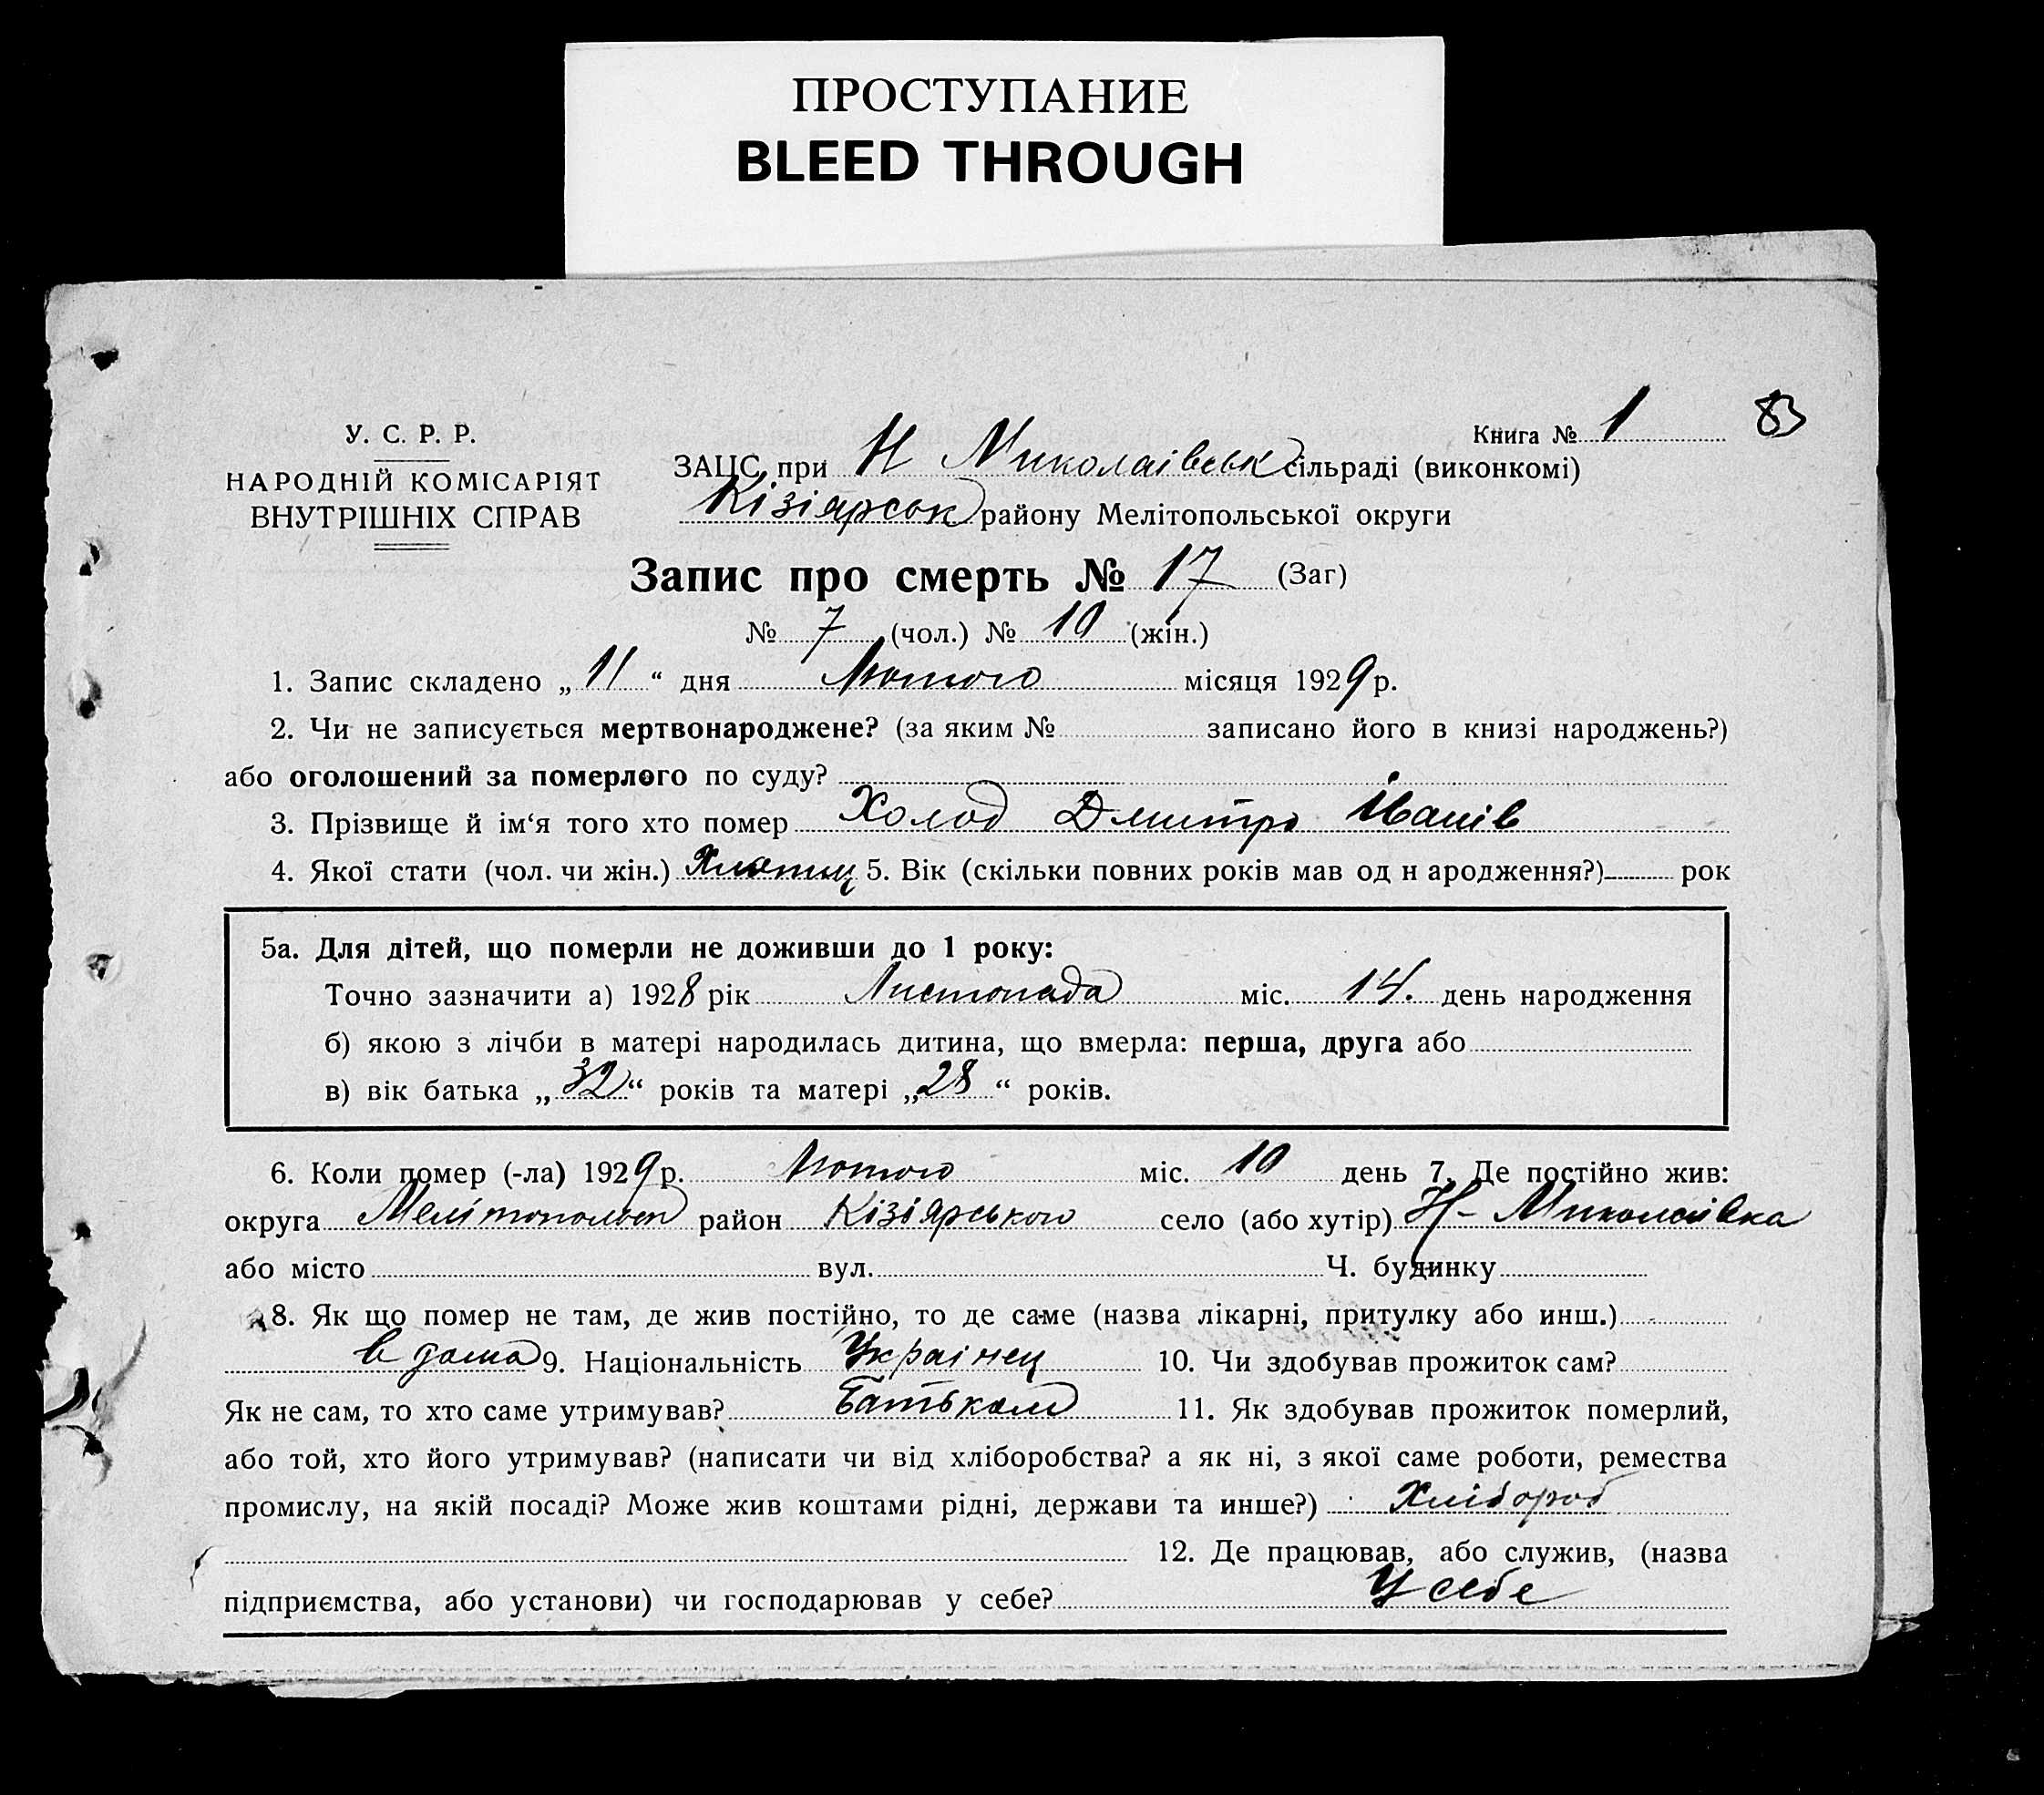 ПРОСТУПАНИЕ
BLEED THROUGH
83
Книга № 1
У. С. Р. Р.
НАРОДНІЙ КОМІСАРІЯТ
ВНУТРІШНІХ СПРАВ
ЗАЦС при Н Миколаівськ сільраді (виконкомі)
Кізіярськ району Мелітопольської округи
Запис про смерть № 17 (Заг)
№ 7 (чол.) № 10 (жін.)
1. Запис складено „ 11 “ дня Лютого місяця 1929 р.
2. Чи не записується мертвонароджене? (за яким № записано його в книзі народжень?)
або оголошений за померлого по суду?
3. Прізвище й ім‘я того хто помер Холод Дмитро Іванів
4. Якої стати (чол. чи жін.) Хлопиц 5. Вік (скільки повних років мав од н ародження?) рок
5а. Для дітей, що померли не доживши до 1 року:
Точно зазначити а) 1928 рік Листопада міс. 14. день народження
б) якою з лічби в матері народилась дитина, що вмерла: перша, друга або
в) вік батька „ 32 “ років та матері „ 28 “ років.
6. Коли помер (-ла) 1929 р. Лютого міс. 10 день 7. Де постійно жив:
округа район Кізіярського село (або хутір) Н- Миколаівка
або місто вул. Ч. будинку
8. Як що помер не там, де жив постійно, то де саме (назва лікарні, притулку або инш.)
в дома 9. Національність Украінец 10. Чи здобував прожиток сам?
Як не сам, то хто саме утримував? Батьком 11. Як здобував прожиток померлий,
або той, хто його утримував? (написати чи від хліборобства? а як ні, з якої саме роботи, ремества
промислу, на якій посаді? Може жив коштами рідні, держави та инше?) Хлібороб
12. Де працював, або служив, (назва
підприємства, або установи) чи господарював у себе? У себе